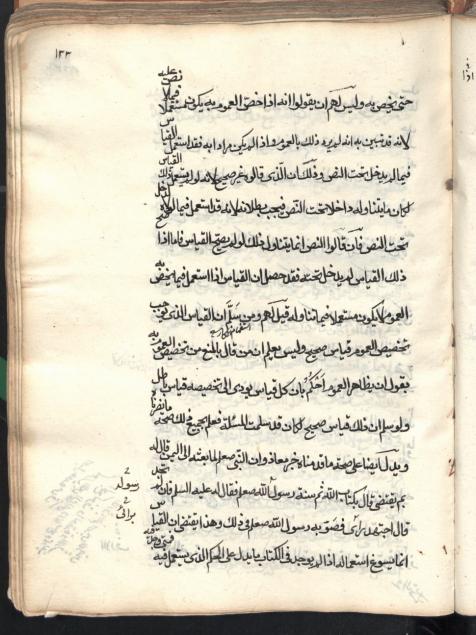 ١٣٣
حتى يخص به وليس لهم ان يقولوا انه اذا خص العموم به يكون مستعملا فيما نص عليه
لانه قد تبين به انه لم يرد ذلك بالعموم واذا لم يكن مرادا به فقد استعمل القياس
فيما لم يدخل تحت النص وذلك ان الذي قالوه غير صحيح لانه لو لم يستعمل ذلك القياس
لكان ما يتناوله داخلا تحت النص فيجب بطلانه لانه قد استعمل فيما لولاه لدخل
تحت النص فان قالوا النص انما يتناول ذلك لو لم يصح القياس فاما اذا صح
ذلك القياس لم يدخل تحته فقد حصل ان القياس اذا استعمل فيما يخص به
العموم لا يكون مستعملا فيما تناوله قيل لهم ومن سلم ان القياس الذي يوجب
تخصيص العموم قياس صحيح وليس يعلم ان من قال بالمنع من تخصيص العموم به
يقول ان بظاهر العموم احكم بان كل قياس يودي الى تخصيصه قياس باطل
ولو سلم ان ذلك قياس صحيح لكان قد سلمت المسئلة فعلم بجميع ذلك صحة ما نصرناه
ويدل ايضا على صحة ما قدمناه خبر معاذ وان النبي صلعم لما بعثه الى اليمن قال له
بم تقتضي قال بكتاب الله ثم سنة رسول الله صلعم فقال له عليه السلم فان لم تجد
قال اجتهد رائي فصوبه رسول الله صلعم في ذلك وهذا يقتضي ان القياس
انما يسوغ استعماله اذا لم يوجد في الكتاب ما يدل على الحكم الذي يستعمل فيه
رسوله
برائي